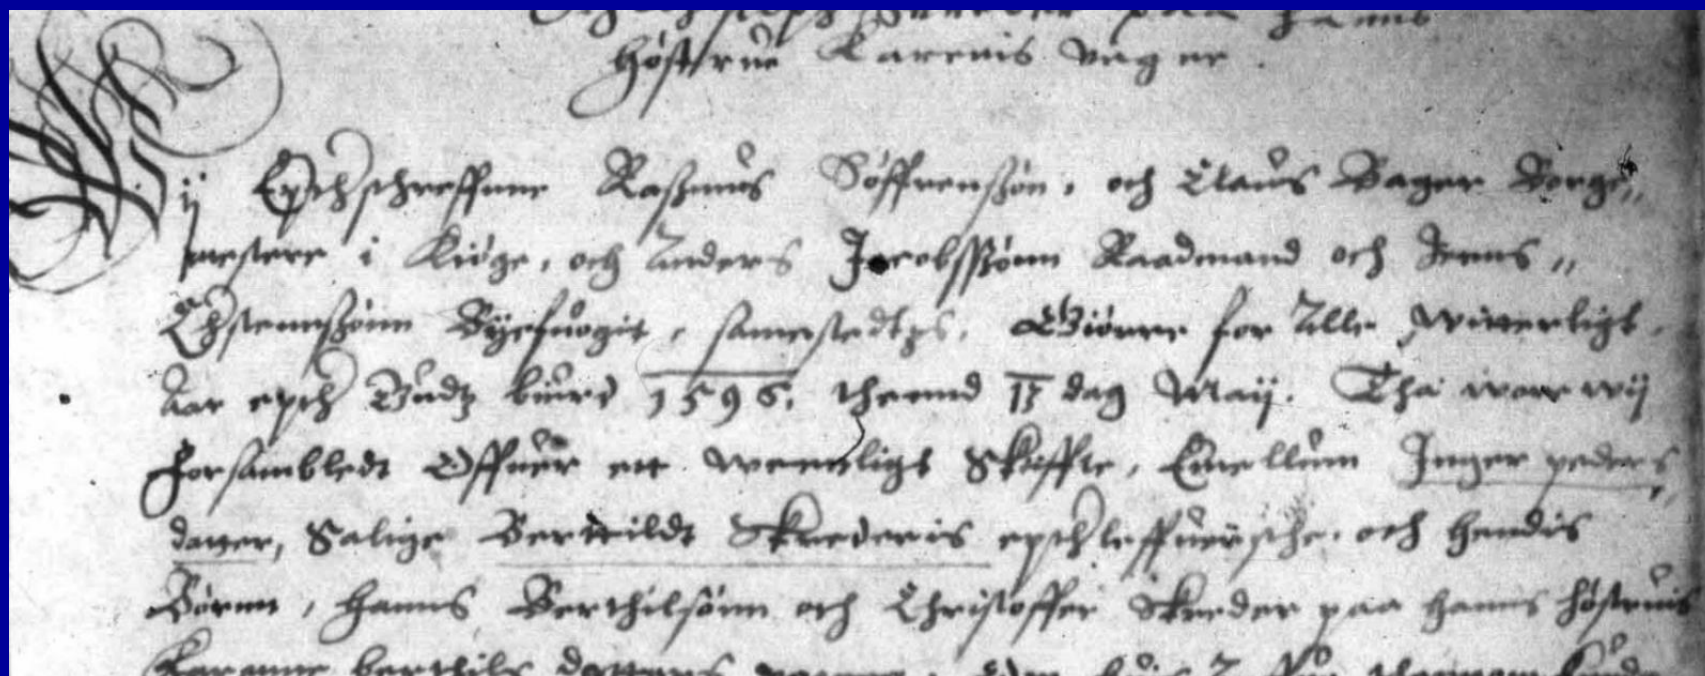 Christoffer Skreder paa Hans
Høstrue Karenis vegne.
Wij Epthschreffnne Raßmus Søffrensßøn, och Claus Bager Borge„
mestere i Kiøge, och Anders Jacobsßønn Raadmand och Jenns„
Chstennsßønn Byefuogit, samestedtzs, Giørre for Alle witterligt,
Aar epth Gudtz biurd 1596, thennd 17 dag Maij. Tha wore wij
forsambledt Offuer ett wennligt Skiffte, Emellum Inger peders
daater, Salige Berthildt Skrederis epthleffuersche, och hendis
Børnn, Hanns Berthilsønn och Christoffer Skreder paa hanns høstruis
Karenne berthils daatters vegne,